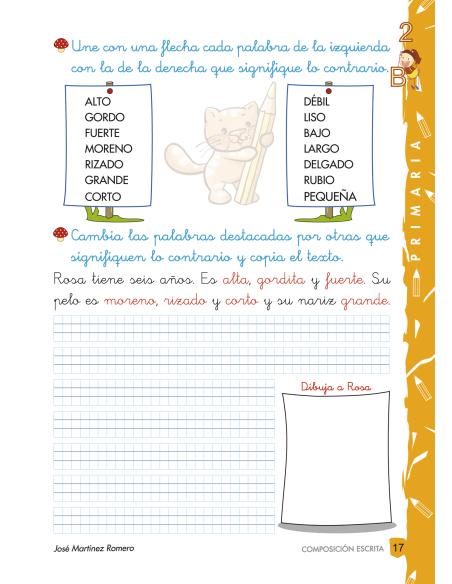 Une con una flecha cada palabra de la izquierda
con la de la derecha que signifique lo contrario.
2
B
PRIMARIA
ALTO
GORDO
FUERTE
MORENO
RIZADO
GRANDE
CORTO
DÉBIL
LISO
BAJO
LARGO
DELGADO
RUBIO
PEQUEÑA
Cambia las palabras destacadas por otras que
signifiquen lo contrario y copia el texto.
Rosa tiene seis años. Es alta, gordita y fuerte. Su
pelo es moreno, rizado y corto y su nariz grande.
Dibuja a Rosa
José Martínez Romero
COMPOSICIÓN ESCRITA
17